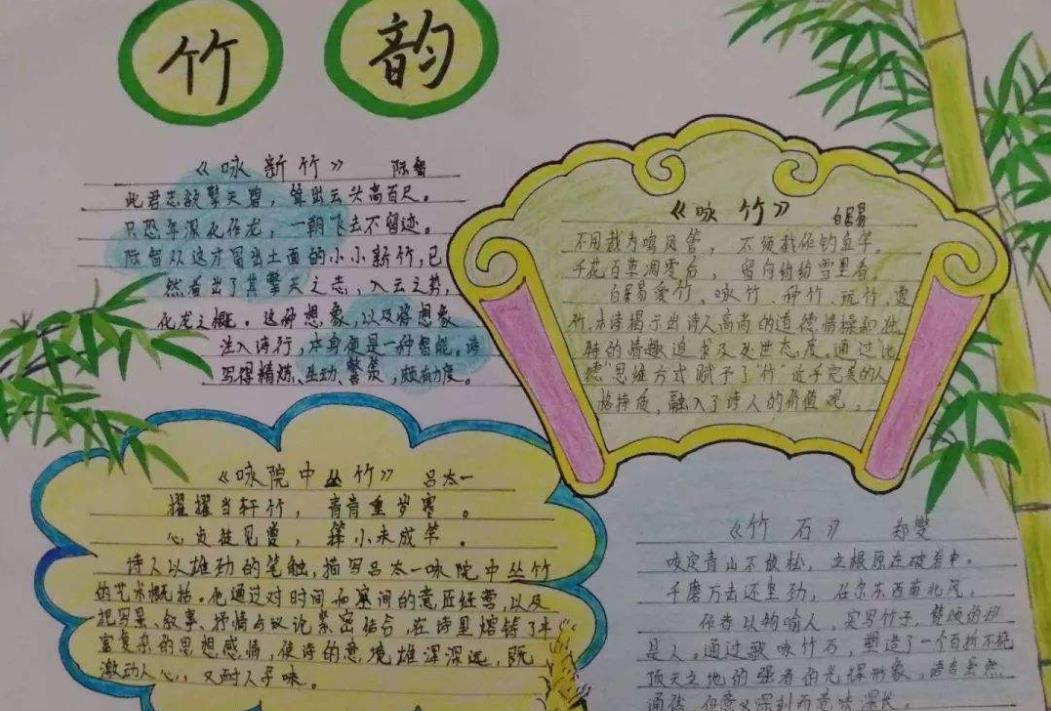 竹韵
《咏新竹》 陈智
此君志欲擎天碧，耸出云头高百尺。
只恐年深化作龙，一朝飞去不留迹。
陈智从这才冒出土面的小小新竹,已
然看出了其擎天之志，入云之势，
化龙之概。这种想象，以及将想象
注入诗行，本身便是一种智能。诗
写得精炼、生动、紧凑，颇有力度。
《咏竹》 白居易
不用裁为鸣凤管， 不须截作钓鱼竿。
千花百草凋零后， 留向纷纷雪里看。
白居易爱竹、咏竹、种竹、玩竹、
竹,本诗揭示出诗人高尚的道德情操和独
特的情趣追求及处世态度。通过"比
德"思维方式赋予了"竹"近乎完美的人
格特质，融入了诗人的价值观。
《咏院中丛竹》 吕太一
擢擢当轩竹， 青青重岁寒。
心贞徒见赏， 箨小未成竿。
诗人以雄劲的笔触,描写吕太一咏院中丛竹
的艺术概括。他通过对时间和空间的意匠经营,以及
把写景、叙事、抒情与议论紧密结合,在诗里熔铸了丰
富复杂的思想感情，使诗的意境雄浑深远，既
激动人心，又耐人寻味。
《竹石》 郑燮
咬定青山不放松， 立根原在破岩中。
千磨万击还坚劲， 任尔东西南北风。
作者以物喻人，实写竹子，赞颂的却
是人。通过歌咏竹石，塑造了一个百折不挠
顶天立地的强者的光辉形象，语言虽然
通俗,但意义深刻而意味深长。